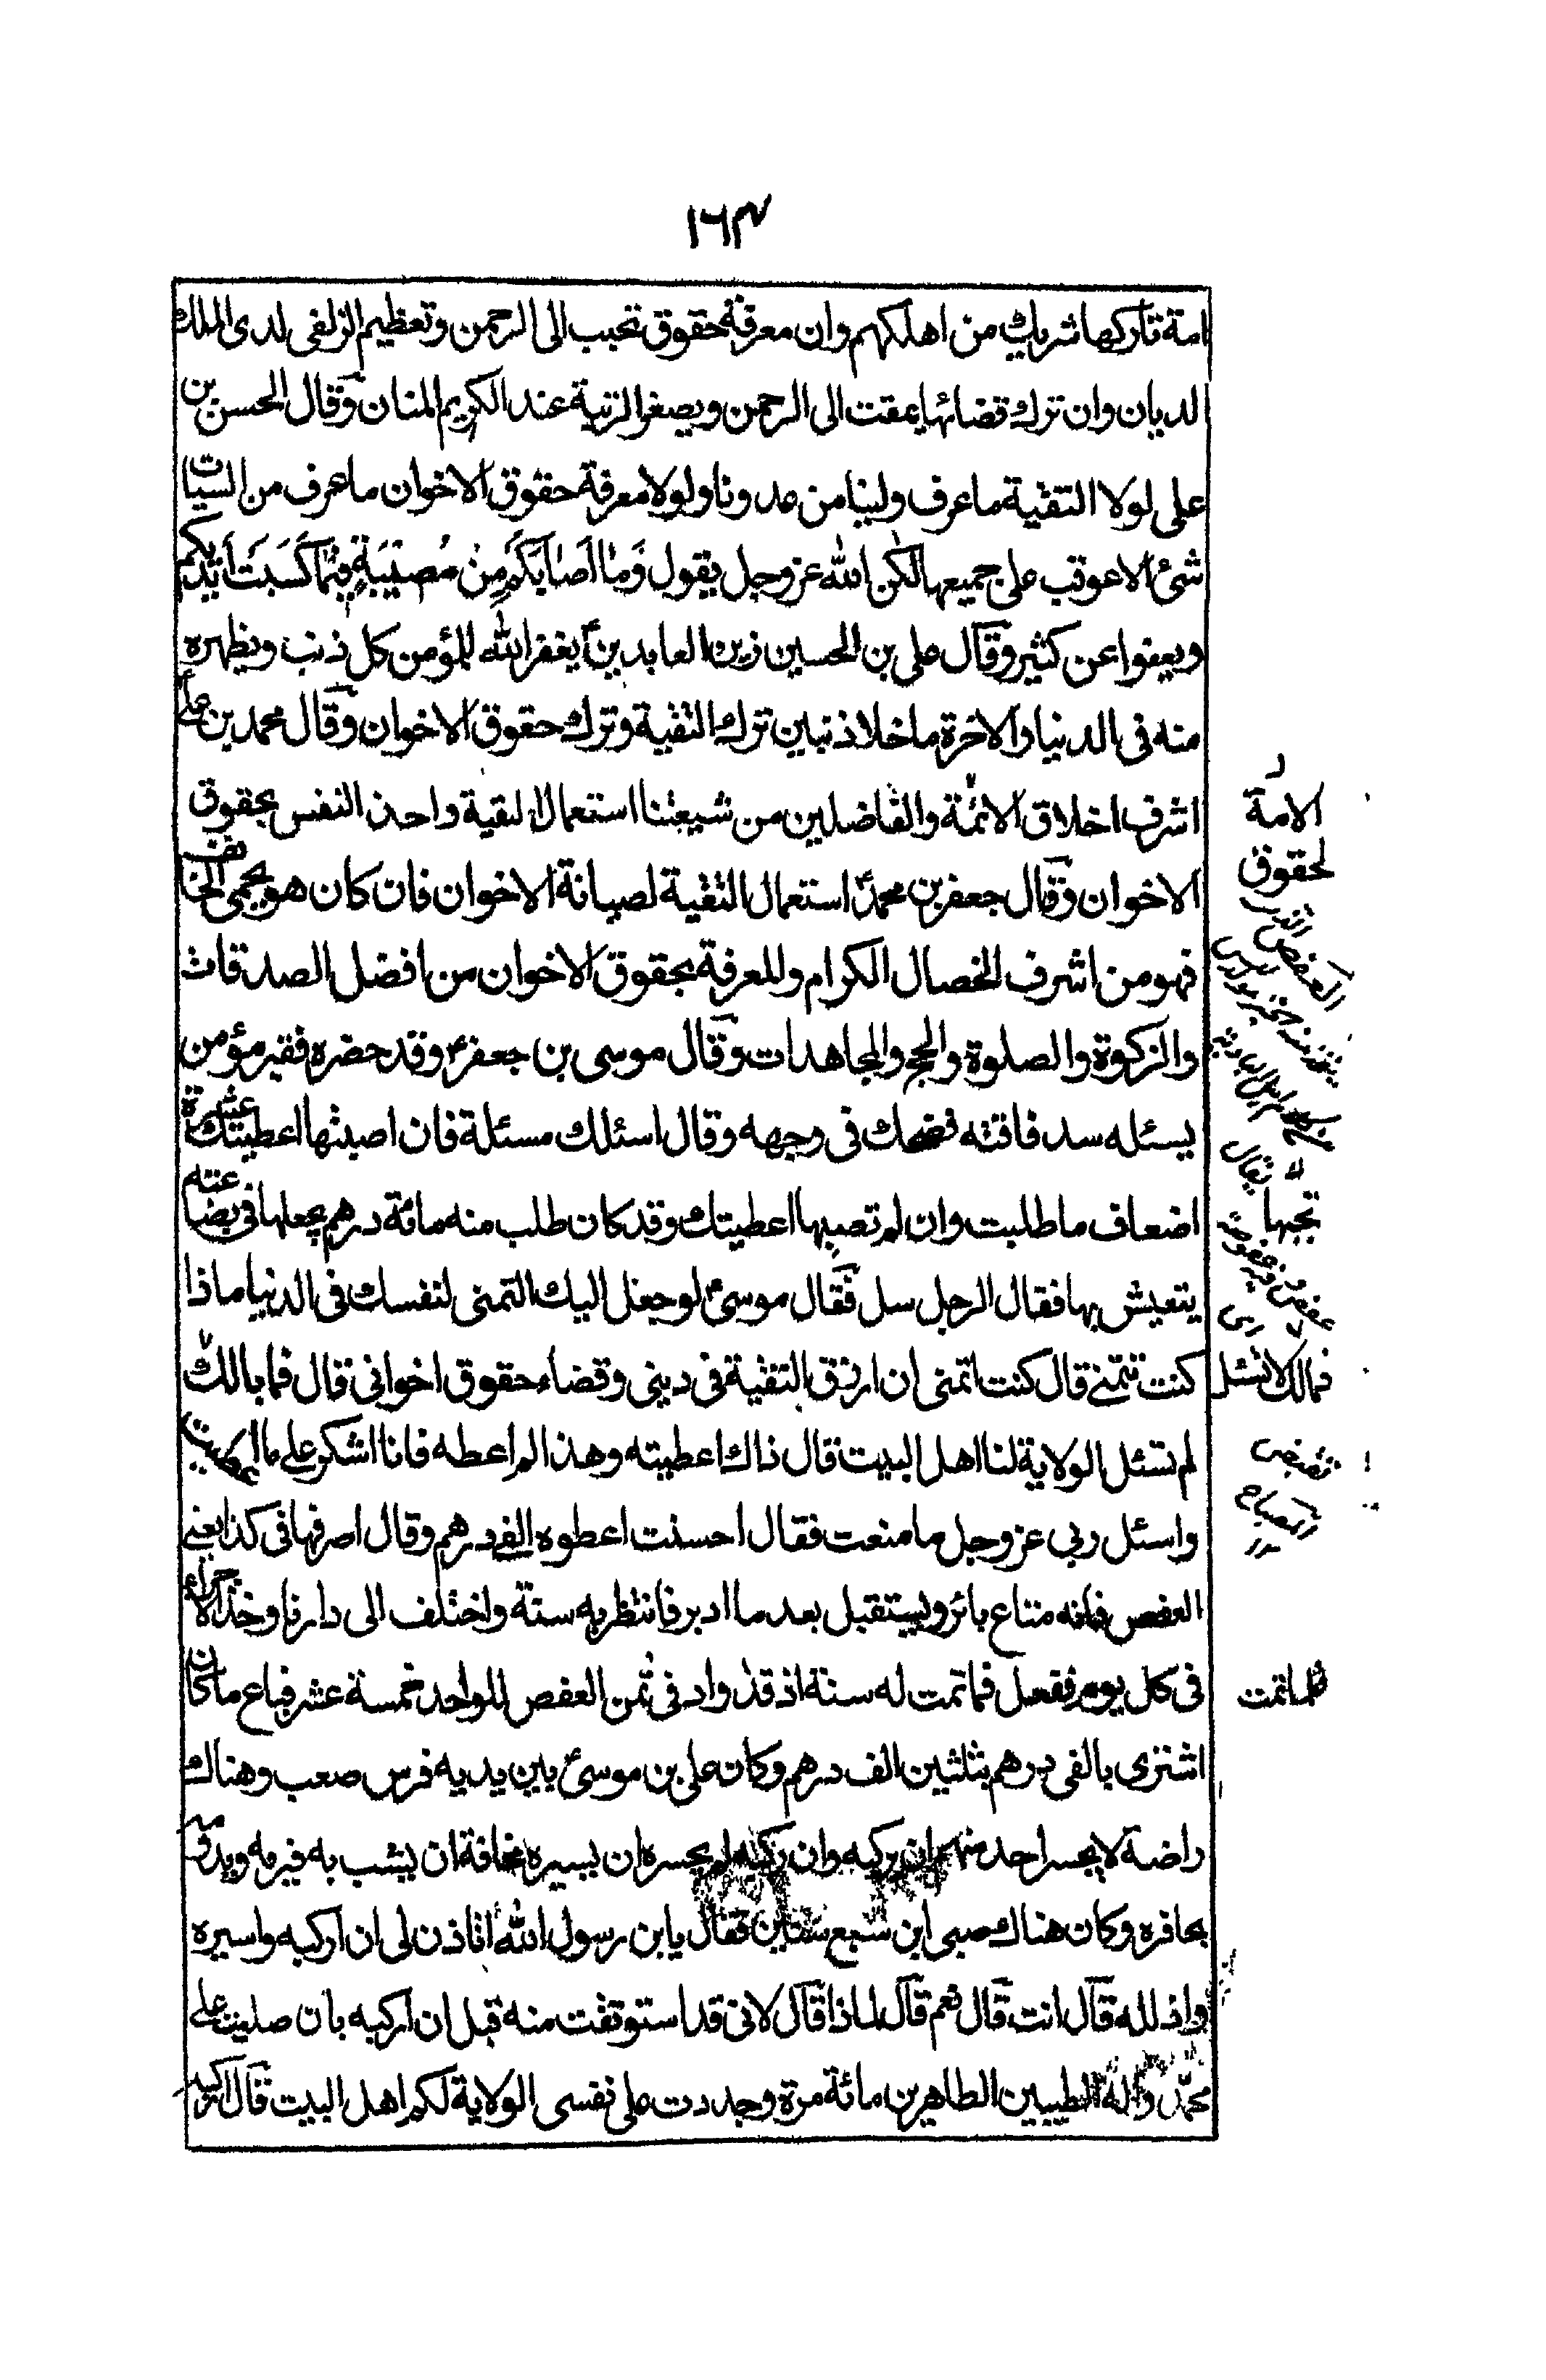 ١٦٣
امة تاركها شريك من اهلكهم وان معرفة حقوق تحبب الى الرحمن وتعظيم الزلفى لدى الملك
لديان وان ترك قضائها يمقت الى الرحمن ويصغر الرتبة عند الكريم المنان وقال الحسن بن
على لولا التقية ما عرف ولينا من عدونا ولولا معرفة حقوق الاخوان ما عرف من السيات
شئ الا عوقب على جميعها لكن الله عز وجل يقول وَمَا اَصَابَكُمْ مِنْ مُصِيْبَةٍ فِبَمَا كَسَبَتْ اَيْدِيكُم
ويعفوا عن كثير وقال على بن الحسين زين العابدين ع يغفر الله للمؤمن كل ذنب ويطهره
منه فى الدنيا والاخرة ما خلا ذنبين ترك التقية وترك حقوق الاخوان وقال محمد بن على
اشرف اخلاق الائمة والفاضلين من شيعتنا استعمال التقية واخذ النفس بحقوق
الاخوان وقال جعفر بن محمد استعمال التقية لصيانة الاخوان فان كان هو يحمى الخائف
فهو من اشرف الخصال الكرام والمعرفة بحقوق الاخوان من افضل الصدقات
والزكوة والصلوة والحج والمجاهدات وقال موسى بن جعفر ع وقد حضره فقير مؤمن
يسئله سد فاقته فضحك فى وجهه وقال اسئلك مسئلة فان اصبتها اعطيتك عشرة
اضعاف ما طلبت وان لم تصبها اعطيتك وقد كان طلب منه مائة درهم يجعلها فى بضاعته
يتعيش بها فقال الرجل سل فقال موسى ع لو جعل اليك التمنى لنفسك فى الدنيا ماذا
كنت تتمنى قال كنت اتمنى ان ارزق التقية فى دينى وقضاء حقوق اخوانى قال فما بالك
لم تسئل الولاية لنا اهل البيت قال ذاك اعطيته وهذا لم اعطه فانا اشكر على ما اعطيت
واسئل ربى عز وجل ما منعت فقال احسنت اعطوه الفى درهم وقال اصرفها فى كذا يعنى
العفص فانه متاع بائر ويستقبل بعد ما ادبر فانتظر به سنة واختلف الى دارنا وخذ الاجراء
فى كل يوم ففعل فما تمت له سنة اذ قد زاد فى ثمن العفص للواحد خمسة عشر فباع ما كان
اشترى بالفى درهم بثلثين الف درهم وكان على بن موسى ع بين يديه فرس صعب وهناك
راضة لا يجسر احد منهم ان يركبه وان ركبه لم يجسره ان يسيره مخافة ان يشب به فيرمه ويدوسه
بحافره وكان هناك صبى ابن سبع سنين فقال يابن رسول الله اتاذن لى ان اركبه واسيره
واذلله قال انت قال نعم قال لماذا قال لانى قد استوثقت منه قبل ان اركبه بان صليت على
محمد واله الطيبين الطاهرين مائة مرة وجددت على نفسى الولاية لكم اهل البيت قال اركبه
الامة
لحقوق
العفص
تجبها
فمالك لا تسئل
فلما تمت